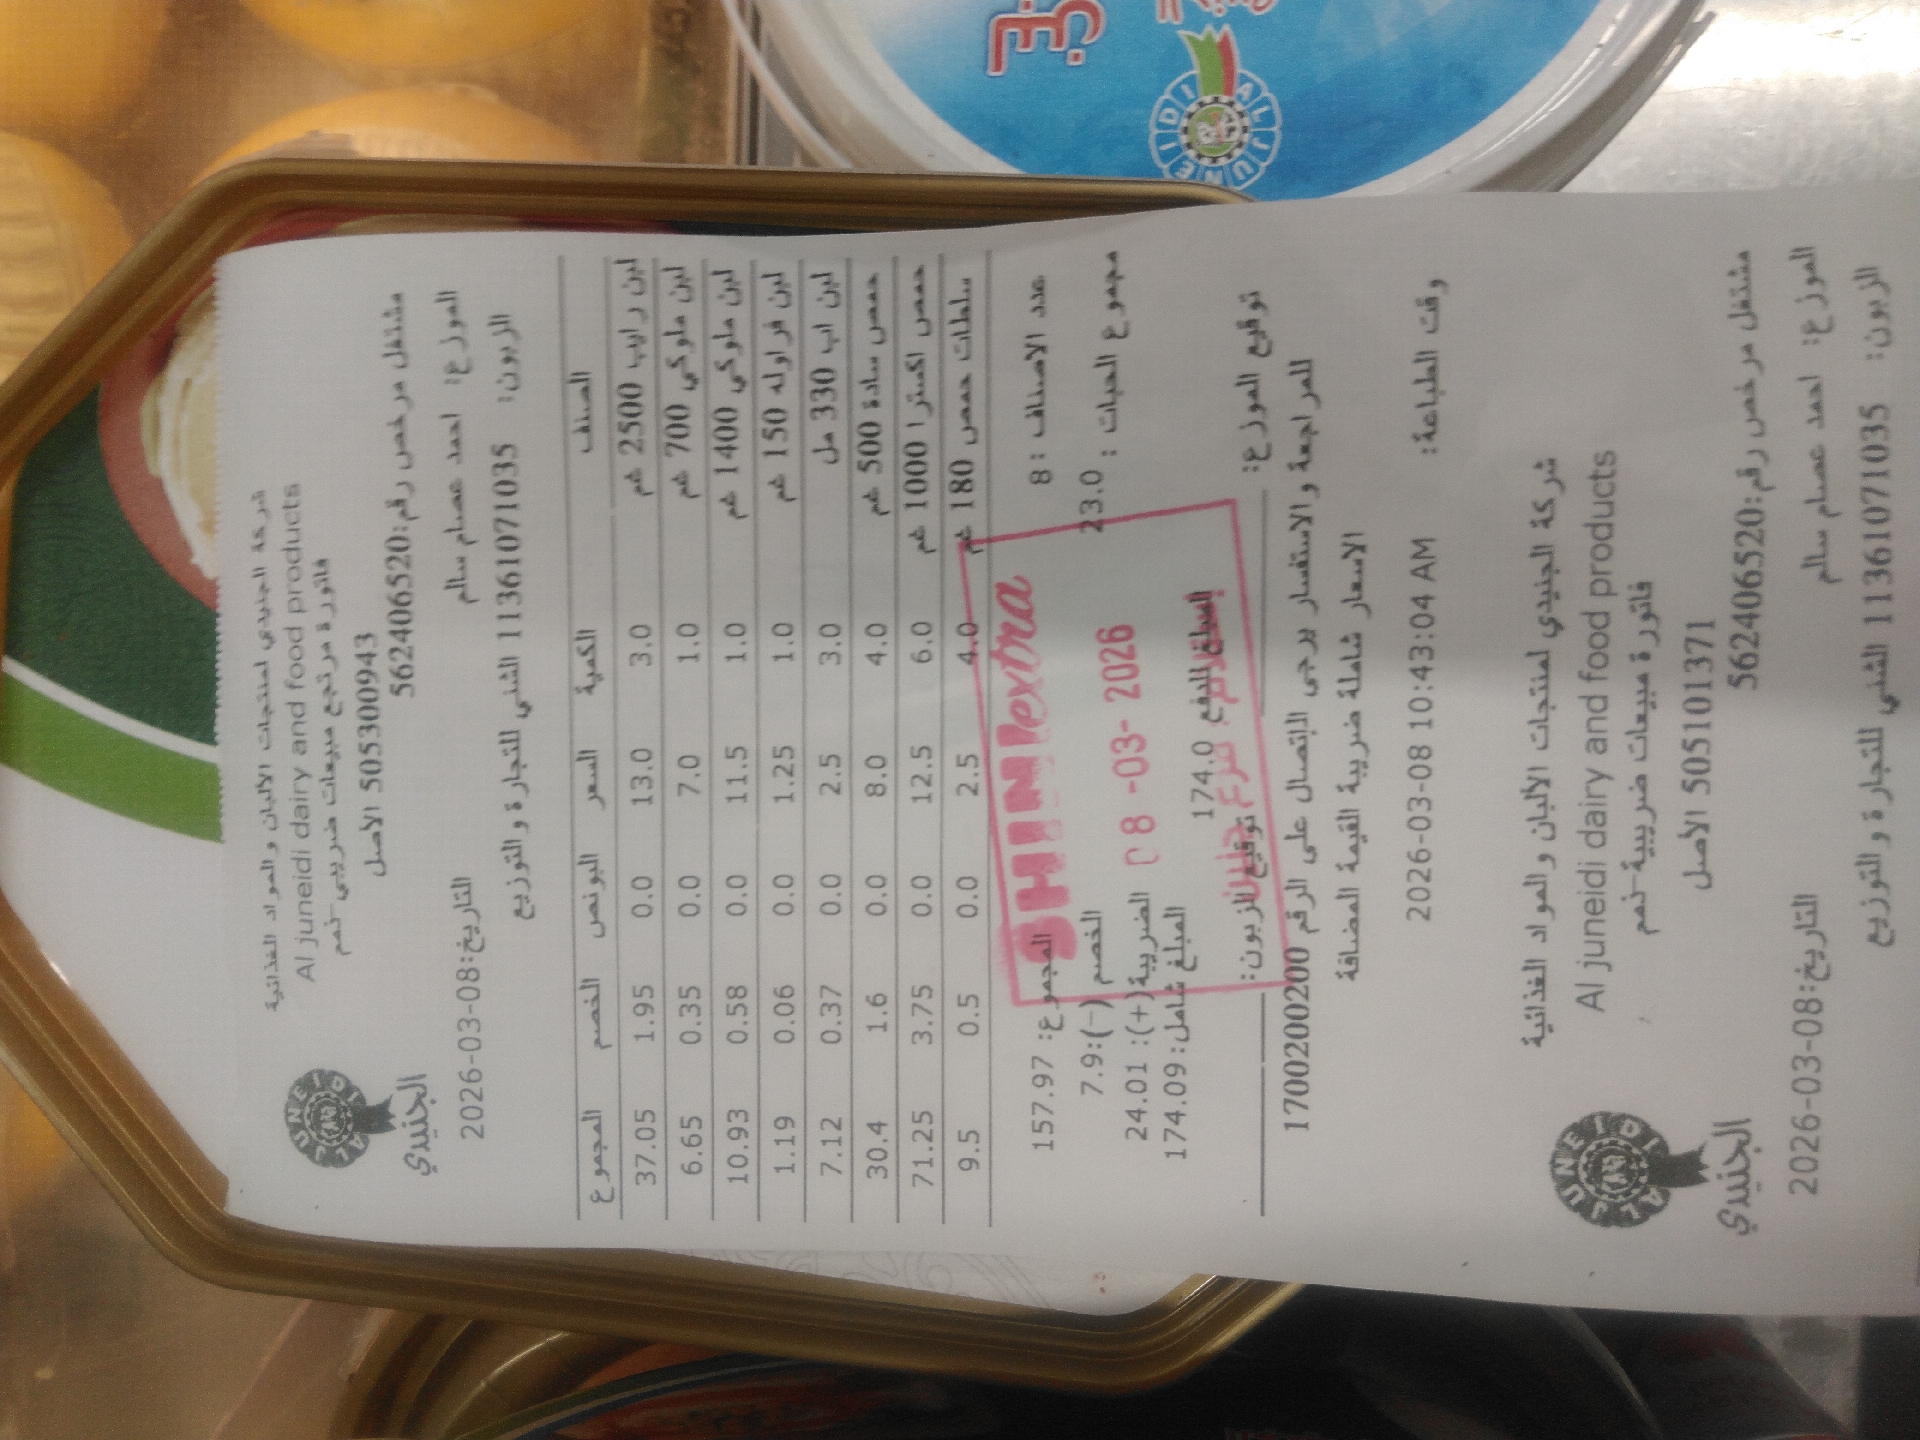 شركة الجنيدي لمنتجات الألبان والمواد الغذائية
Al juneidi dairy and food products
فاتورة مرتجع مبيعات ضريبي-نعم
505300943 الأصل
مشتغل مرخص رقم:562406520
AL JUNEIDI
الجنيدي
الموزع: احمد عصام سالم
التاريخ:2026-03-08
الزبون: 1136107103​5 الشني للتجارة والتوزيع
الصنف الكمية السعر البونص الخصم المجموع
لبن رايب 2500 غم 3.0 13.0 0.0 1.95 37.05
لبن ملوكي 700 غم 1.0 7.0 0.0 0.35 6.65
لبن ملوكي 1400 غم 1.0 11.5 0.0 0.58 10.93
لبن فراوله 150 غم 1.0 1.25 0.0 0.06 1.19
لبن اب 330 مل 3.0 2.5 0.0 0.37 7.12
حمص سادة 500 غم 4.0 8.0 0.0 1.6 30.4
حمص اكسترا 1000 غم 6.0 12.5 0.0 3.75 71.25
سلطات حمص 180 غم 4.0 2.5 0.0 0.5 9.5
عدد الاصناف : 8 المجموع: 157.97
مجموع الحبات : 23.0 الخصم (-):7.9
الضريبة(+): 24.01
المبلغ للدفع 174.0 المبلغ شامل: 174.09
SHINI extra
08 -03- 2026
توقيع الموزع: توقيع الزبون:
للمراجعة والاستفسار يرجى الإتصال على الرقم 1700200200
الاسعار شاملة ضريبة القيمة المضافة
وقت الطباعة: 2026-03-08 10:43:04 AM
شركة الجنيدي لمنتجات الألبان والمواد الغذائية
Al juneidi dairy and food products
فاتورة مبيعات ضريبية-نعم
505101371 الأصل
مشتغل مرخص رقم:562406520
AL JUNEIDI
الجنيدي
الموزع: احمد عصام سالم
التاريخ:2026-03-08
الزبون: 11361071035 الشني للتجارة والتوزيع
AL JUNEIDI